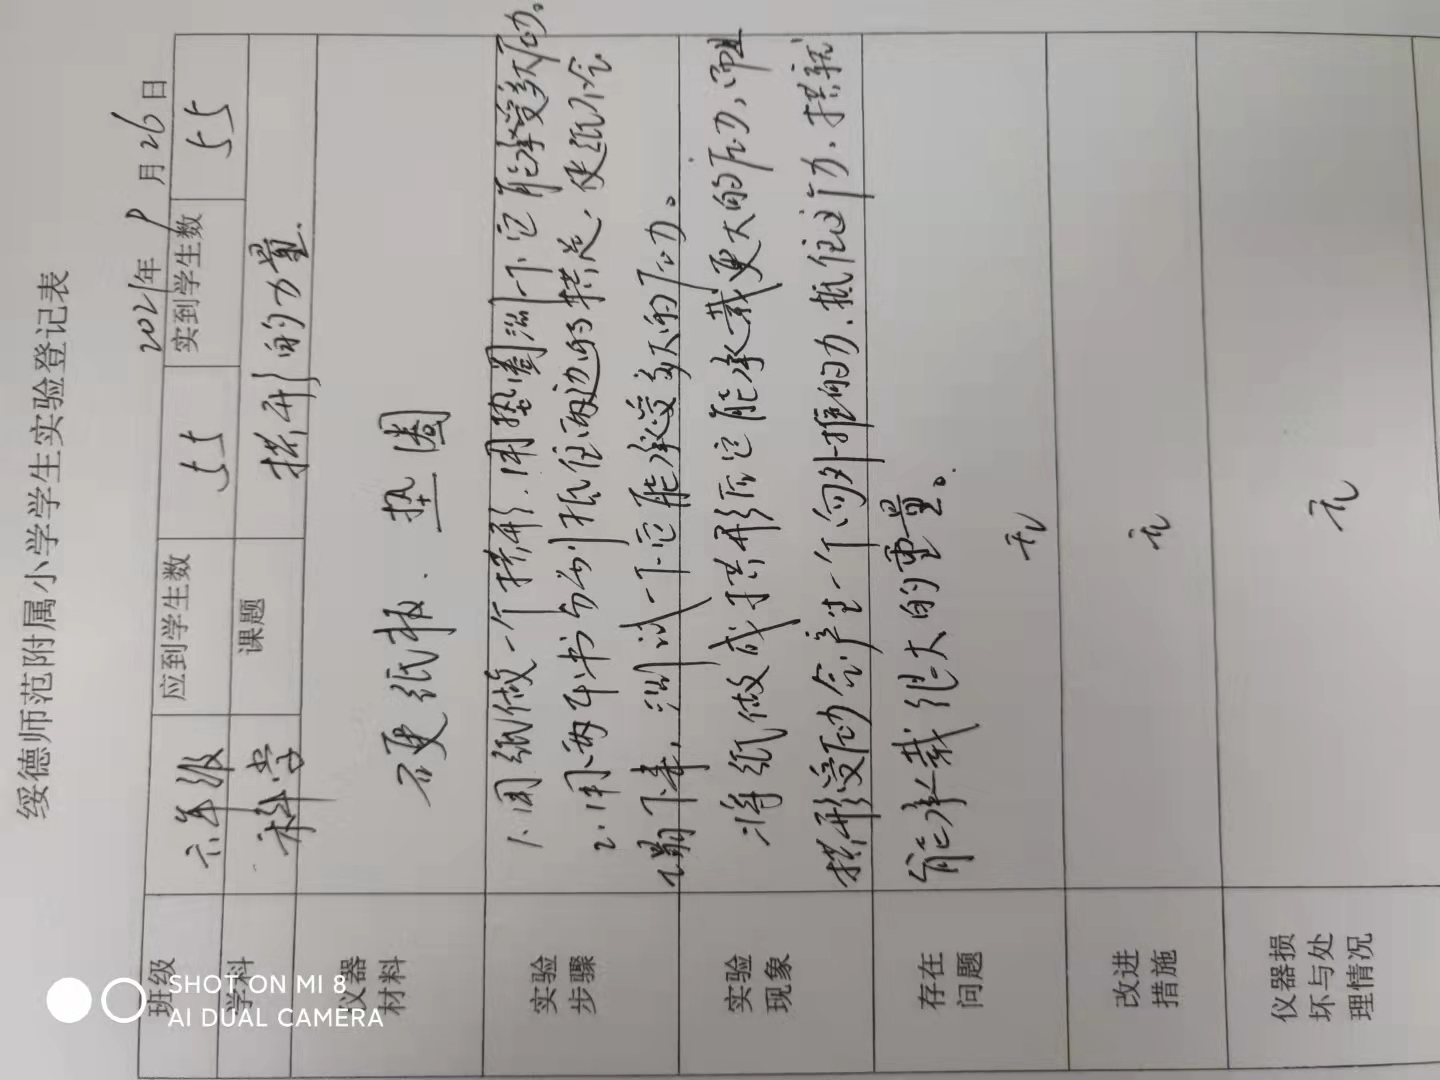 绥德师范附属小学学生实验登记表
2021年 9 月 26 日
班级 六年级 应到学生数 55 实到学生数 55
学科 科学 课题 拱形的力量.
仪器材料 硬纸板. 垫圈
实验步骤
1、用纸做一个拱形.用垫圈测一下它能承受多大的。
2、用两本书分别抵住两边的拱足,使纸不会
塌下来,测试一下它能承受多大的压力。
实验现象
将纸做成拱形后它能承载更大的压力,
拱形受压力会产生一个向外推的力.抵住这个力.拱就
能承载很大的重量。
存在问题 无
改进措施 无
仪器损坏与处理情况 无
SHOT ON MI 8
AI DUAL CAMERA